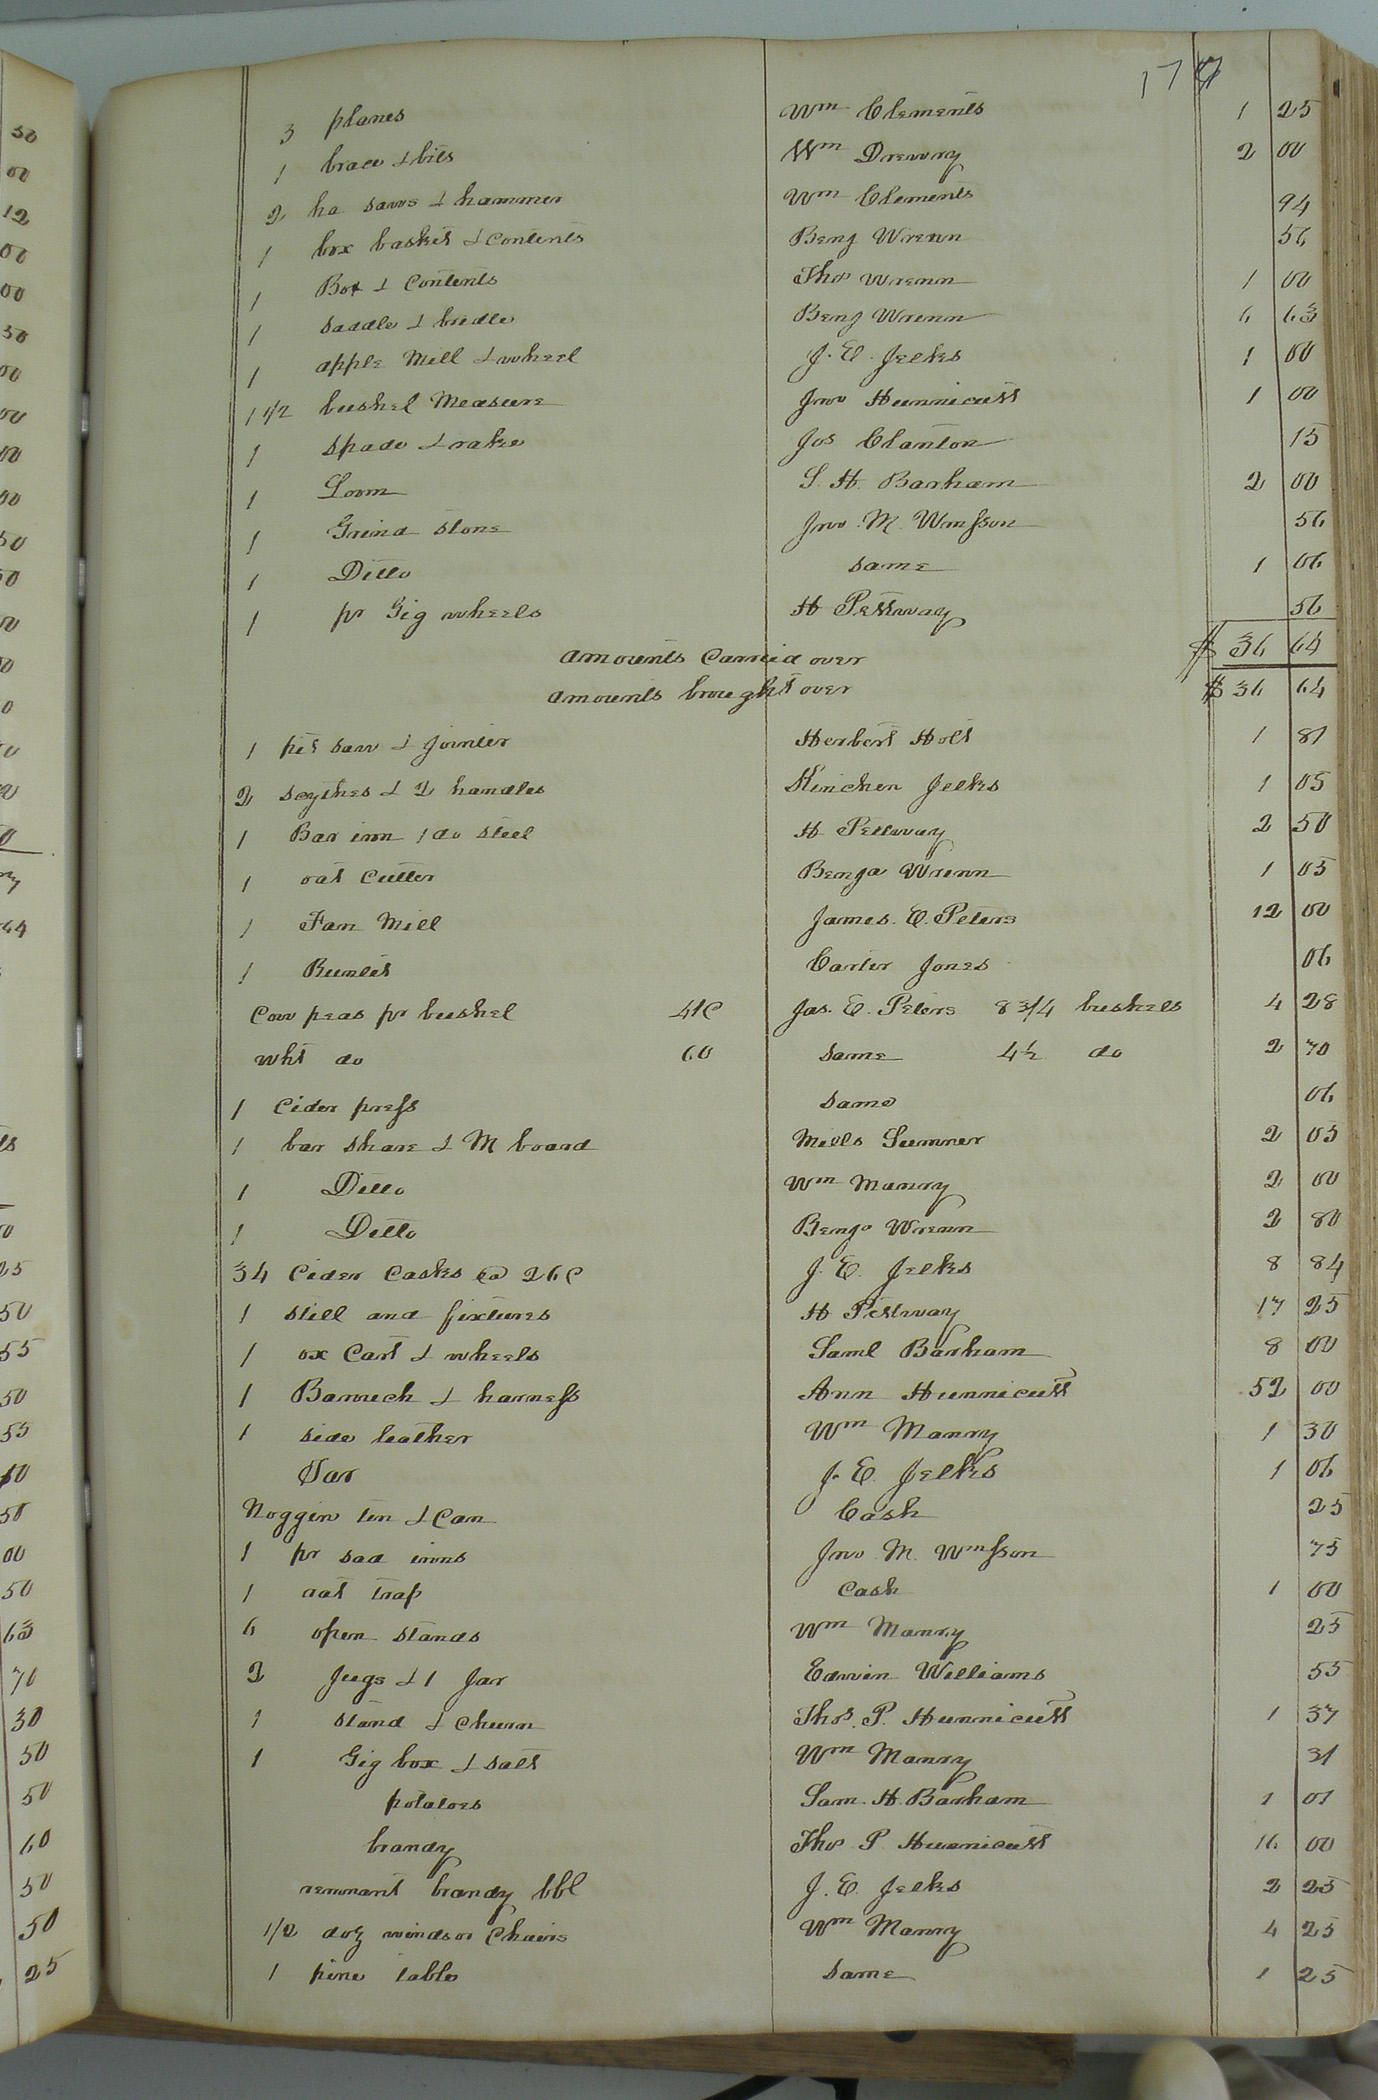 179
3 planes Wm Clements 1 25
1 brace & bits Wm Drewry 2 00
2 ha saws & hammer Wm Clements 94
1 box basket & Contents Benj Wrenn 56
1 Box & Contents Thos Wrenn 1 00
1 saddle & bridle Benj Wrenn 6 63
1 apple Mill & wheel J. E. Jelks 1 00
1 1/2 bushel Measure Jno Hunnicutt 1 00
1 spade & rake Jos Clanton 15
1 Loom S. H. Barham 2 00
1 Grind stone Jno. M. Wmsson 56
1 Ditto same 1 06
1 pr Gig wheels H Pettway 56
Amounts Carried over $ 36 64
Amounts brought over $ 36 64
1 pit saw & jointer Herbert Holt 1 81
2 scythes & 2 handles Kinchen Jelks 1 05
1 Bar iron 1 do steel H Pettway 2 50
1 oat Cutter Benja Wrenn 1 05
1 Fan Mill James. E. Peters 12 00
1 Rumlet Carter Jones 06
Cow peas pr bushel 49C Jas. E. Peters 8 3/4 bushels 4 28
Wht do 60 same 4½ do 2 70
1 Cider press same 06
1 bar share & M board Mills Sumner 2 05
1 Ditto Wm Manry 2 00
1 Ditto Benja Wrenn 2 80
34 Cider Casks @ 26C J. E. Jelks 8 84
1 still and fixtures H Pettway 17 25
1 ox Cart & wheels Saml Barham 8 00
1 Barouch & harness Ann Hunnicutt 52 00
1 side leather Wm Manry 1 30
Tar J. E. Jelks 1 06
Noggin tin & Can Cash 25
1 pr sad irons Jno. M. Wmsson 75
1 rat trap Cash 1 00
6 open stands Wm Manry 25
2 Jugs & 1 Jar Edwin Williams 55
1 stand & Churn Thos. P. Hunnicutt 1 37
1 Gig box & salt Wm Manry 31
potatoes Sam. H. Barham 1 01
brandy Thos P. Hunnicutt 16 00
remnant brandy bbl J. E. Jelks 2 25
1/2 doz windsor Chairs Wm Manry 4 25
1 pine table same 1 25